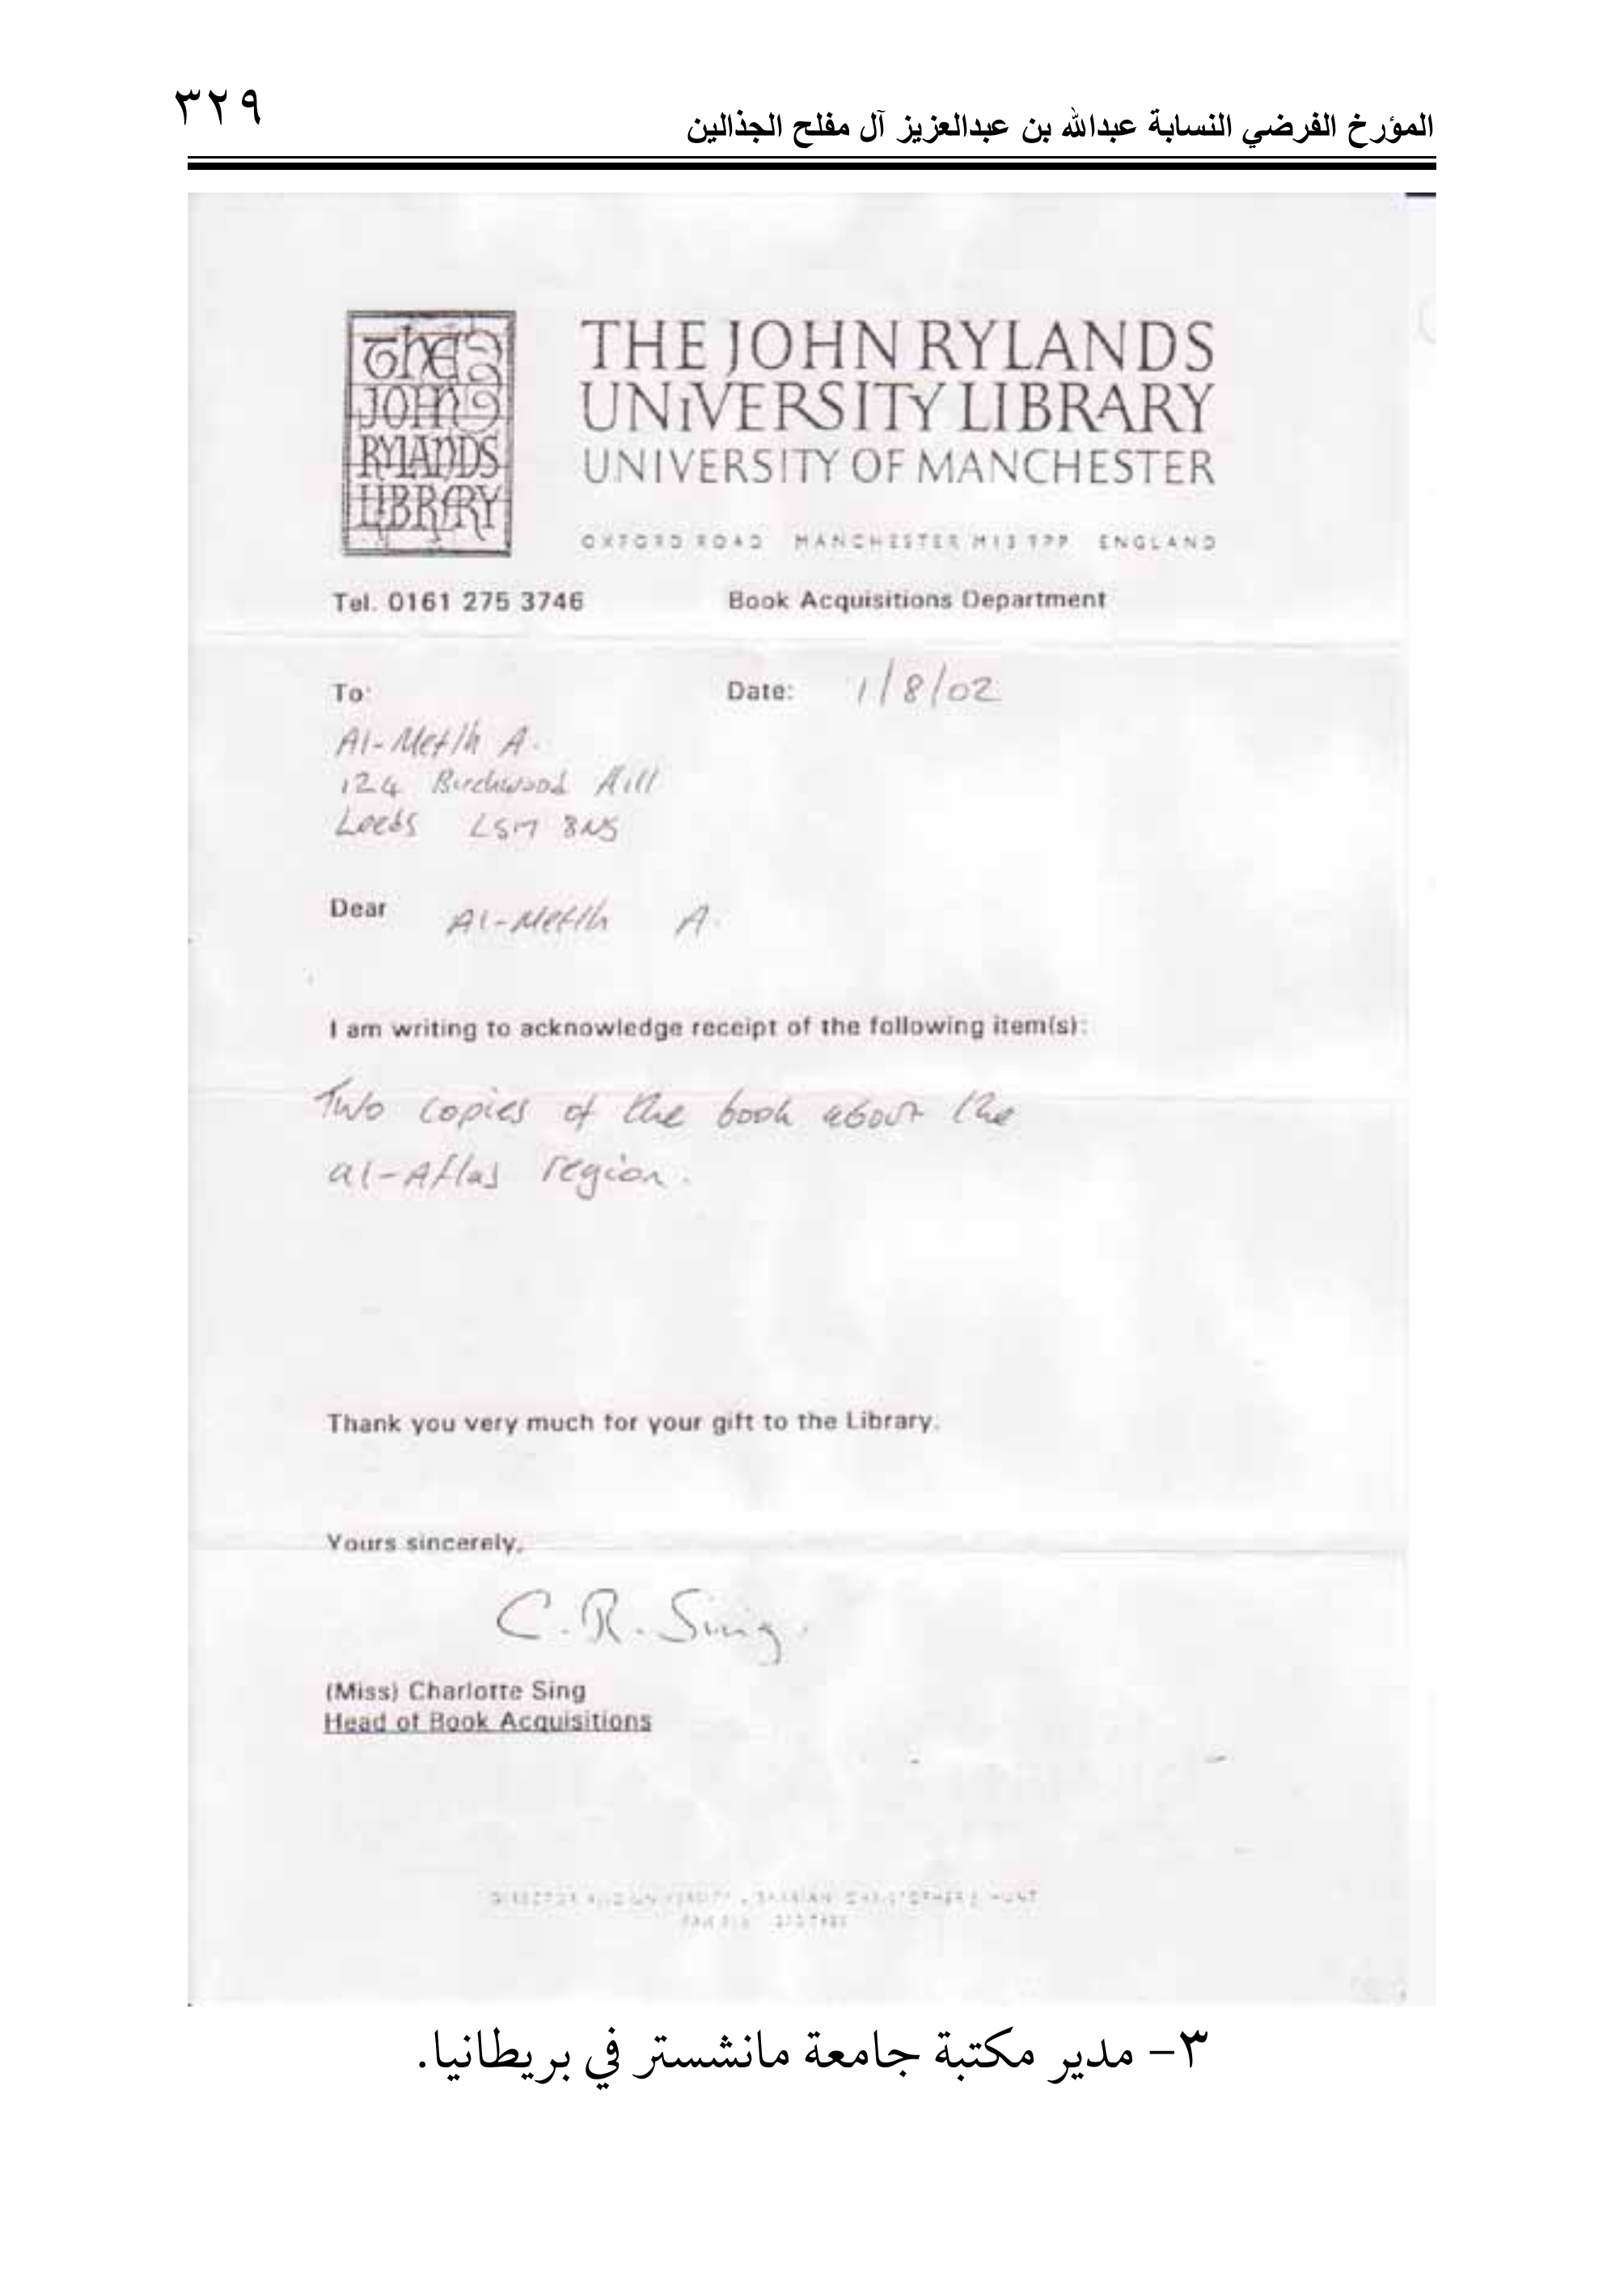 المؤرخ الفرضي النسابة عبدالله بن عبدالعزيز آل مفلح الجذالين
٣٢٩
THE JOHN RYLANDS
LIBRARY
THE JOHN RYLANDS
UNIVERSITY LIBRARY
UNIVERSITY OF MANCHESTER
OXFORD ROAD MANCHESTER M13 9PP ENGLAND
Tel. 0161 275 3746 Book Acquisitions Department
To: Date: 1/8/02
Al-Meflh A.
124 Birchwood Hill
Leeds LS17 8NS
Dear Al-Meflh A.
I am writing to acknowledge receipt of the following item(s):
Two copies of the book about the
al-Aflas region.
Thank you very much for your gift to the Library.
Yours sincerely,
C.R. Sing.
(Miss) Charlotte Sing
Head of Book Acquisitions
٣- مدير مكتبة جامعة مانشستر في بريطانيا.